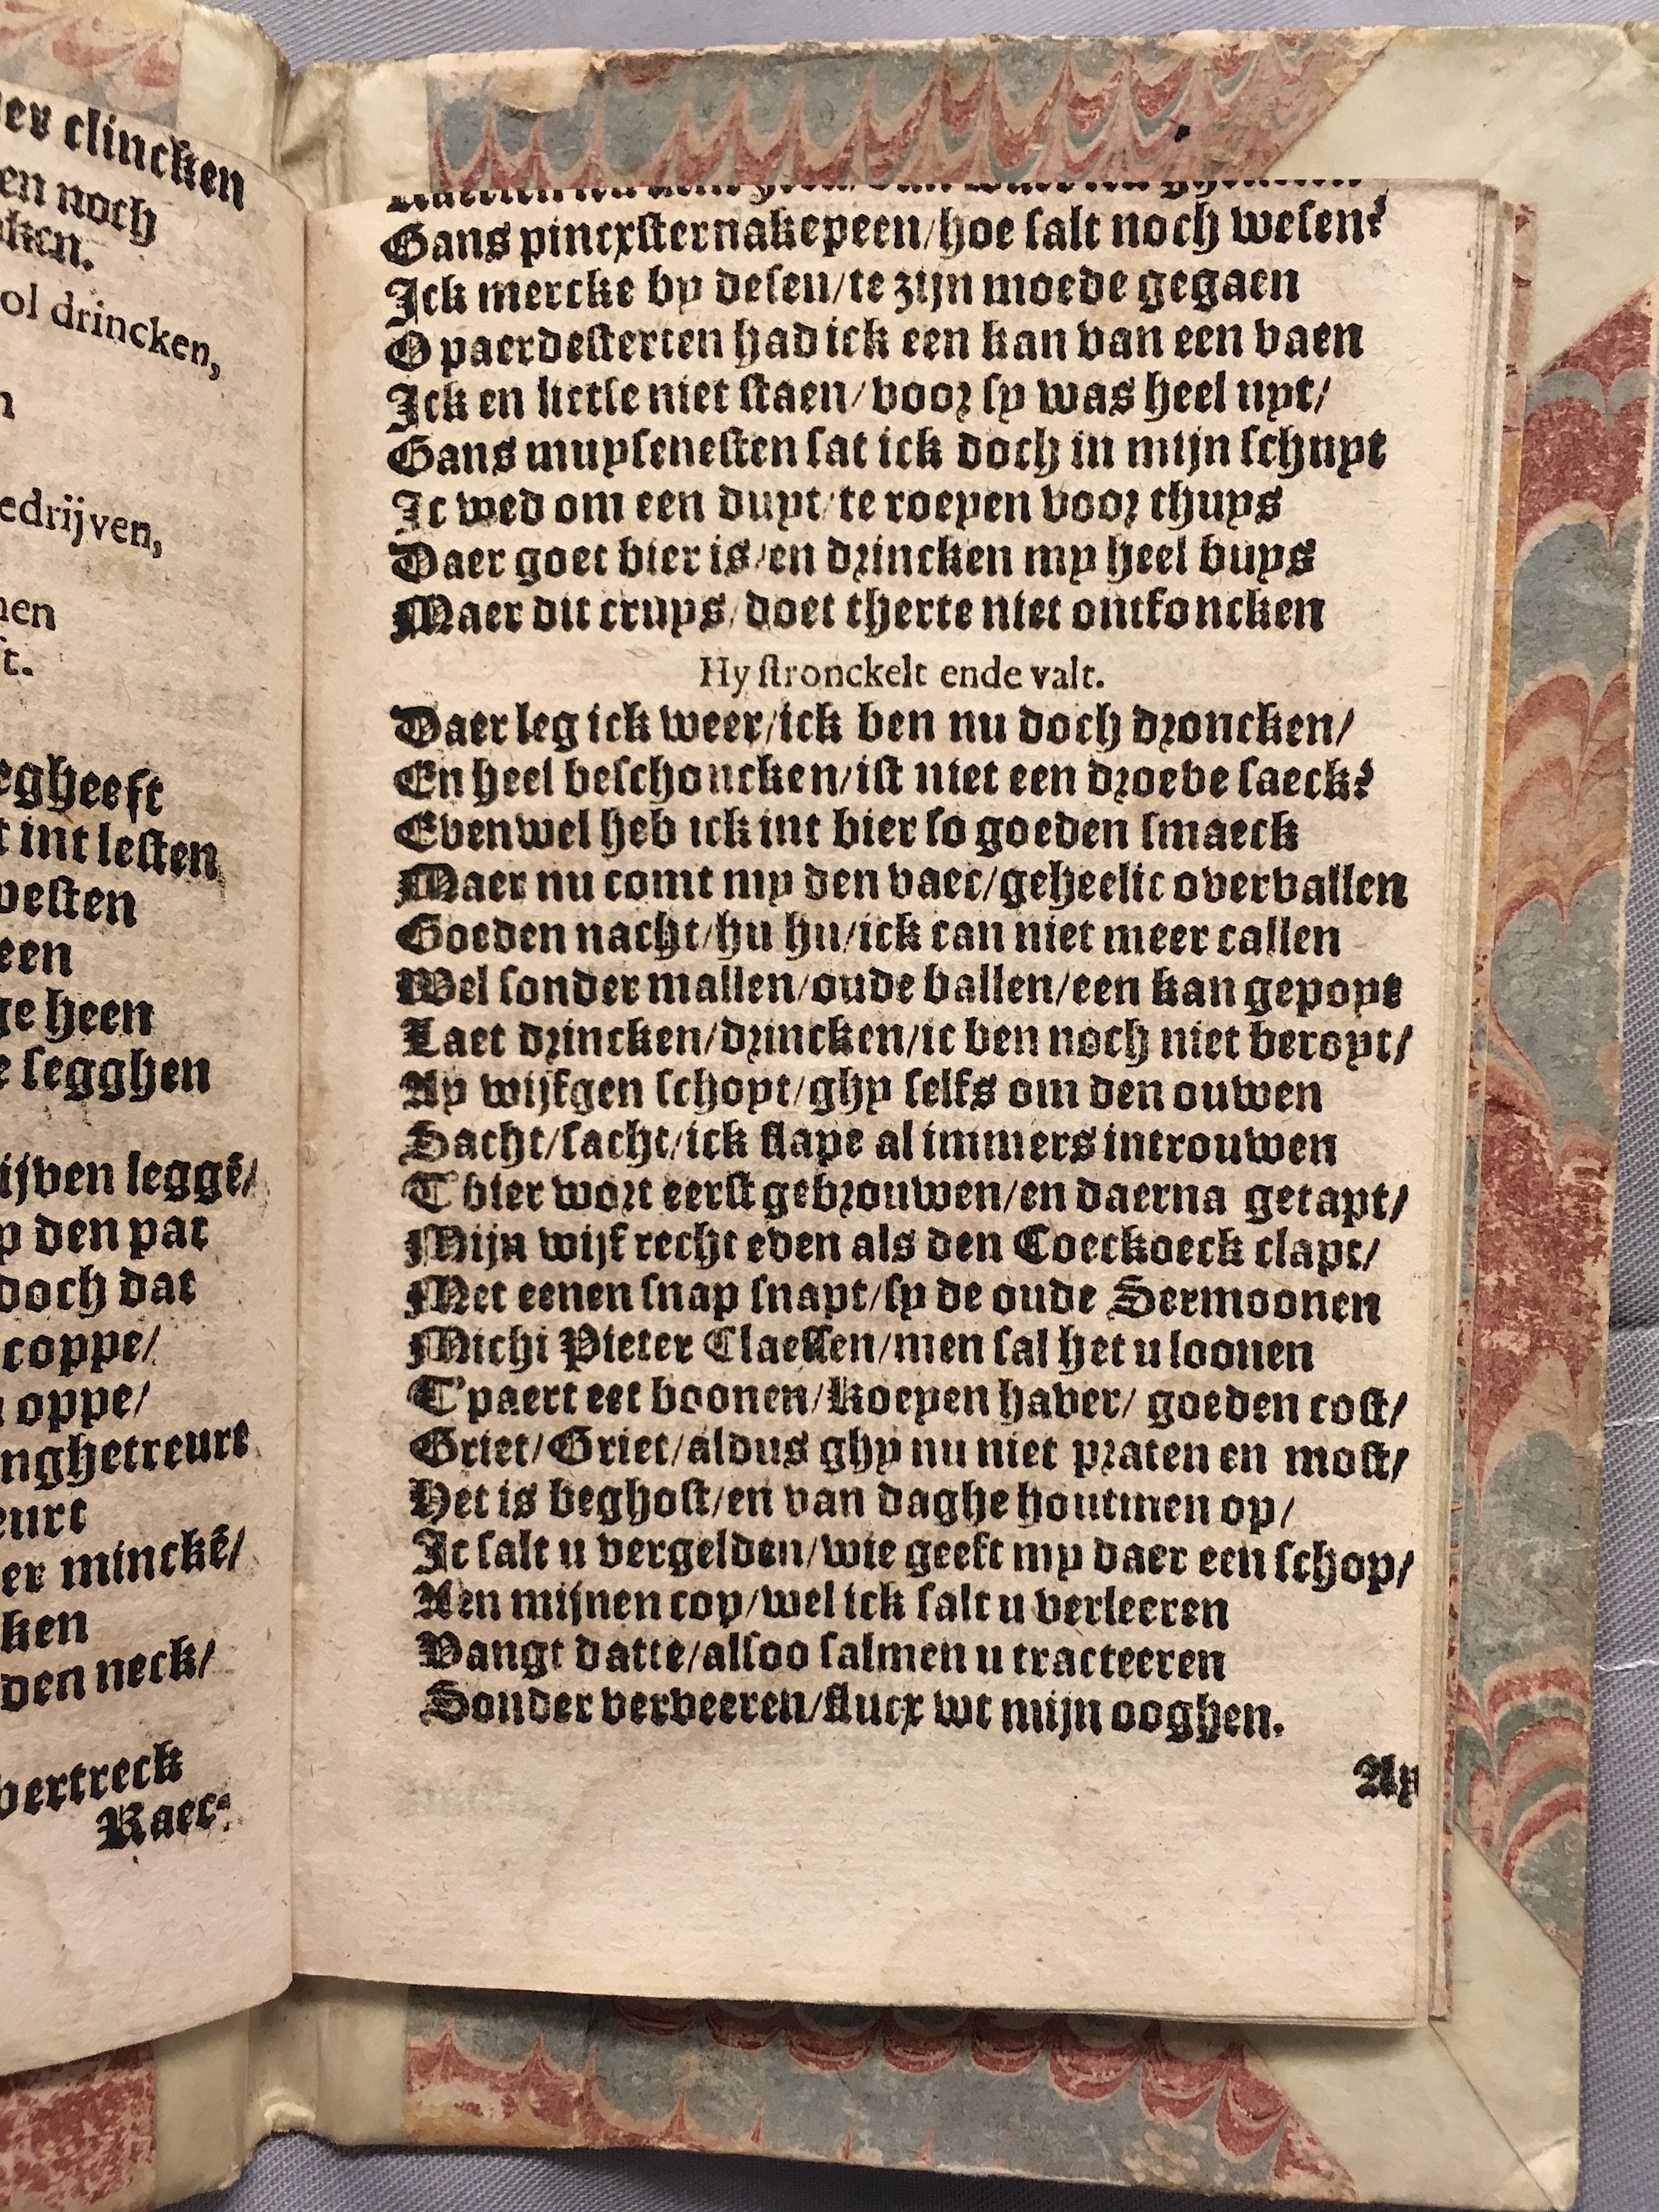 er clincken
en noch
ol drincken,
edrijven,
egheeft
int lesten
een
ge heen
segghen
ijven leggē/
den pat
doch dat
coppe/
oppe/
nghetreurt
eurt
er minckē/
ken
den neck/
vertreck
Raec-
Gans pincxsternakepeen/hoe salt noch wesen?
Ick mercke by desen/te zijn moede gegaen
O paerdesterten had ick een kan van een vaen
Ick en lietse niet staen/voor sy was heel uyt/
Gans muysenesten sat ick doch in mijn schuyt
Ic wed om een duyt/te roepen voor thuys
Daer goet bier is/en drincken my heel buys
Maer dit cruys/doet therte niet ontfoncken
Hy stronckelt ende valt.
Daer leg ick weer/ick ben nu doch droncken/
En heel beschoncken/ist niet een droeve saeck?
Evenwel heb ick int bier so goeden smaeck
Maer nu comt my den vaec/geheelic overvallen
Goeden nacht/hu hu/ick can niet meer callen
Wel sonder mallen/oude ballen/een kan gepoyt
Laet drincken/drincken/ic ben noch niet beroyt/
Ay wijfgen schoyt/ghy selfs om den ouwen
Sacht/sacht/ick slape al immers introuwen
T bier wort eerst gebrouwen/en daerna getapt/
Mijn wijf recht even als den Coeckoeck clapt/
Met eenen snap snapt/sy de oude Sermoonen
Michi Pieter Claessen/men sal het u loonen
T'paert eet boonen/Koeyen haver/ goeden cost/
Griet/Griet/aldus ghy nu niet praten en most/
Het is beghost/en van daghe houtmen op/
Ic salt u vergelden/wie geeft my daer een schop/
Aen mijnen cop/wel ick salt u verleeren
Vangt datte/alsoo salmen u tracteeren
Sonder verveeren/flucx wt mijn ooghen.
Ay